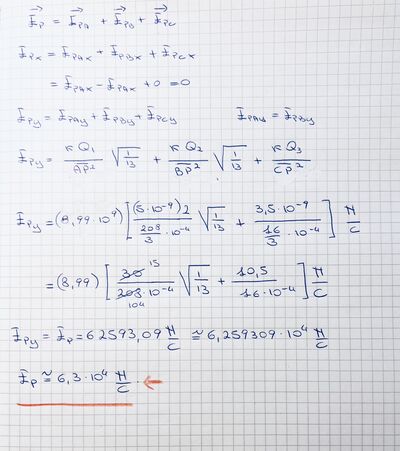 E⃗_P = E⃗_PA + E⃗_PB + E⃗_PC
E_Px = E_PAx + E_PBx + E_PCx
= E_PAx - E_PAx + 0 = 0
E_Py = E_PAy + E_PBy + E_PCy E_PAy = E_PBy
E_Py = K Q₁ / AP̅² √(1/13) + K Q₂ / BP̅² √(1/13) + K Q₃ / CP̅²
E_Py = (8,99·10⁹) [ (5·10⁻⁹)2 / (208/3 ·10⁻⁴) √(1/13) + 3,5·10⁻⁹ / (16/3 ·10⁻⁴) ] N/C
= (8,99) [ 30 15 / (208·10⁻⁴ 104) √(1/13) + 10,5 / (16·10⁻⁴) ] N/C
E_Py = E_P = 62593,09 N/C ≅ 6,259309·10⁴ N/C
E_P ≅ 6,3·10⁴ N/C ←